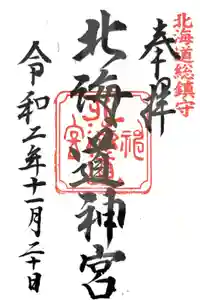 北海道総鎮守
奉拝
北海道神宮
令和二年十一月二十日